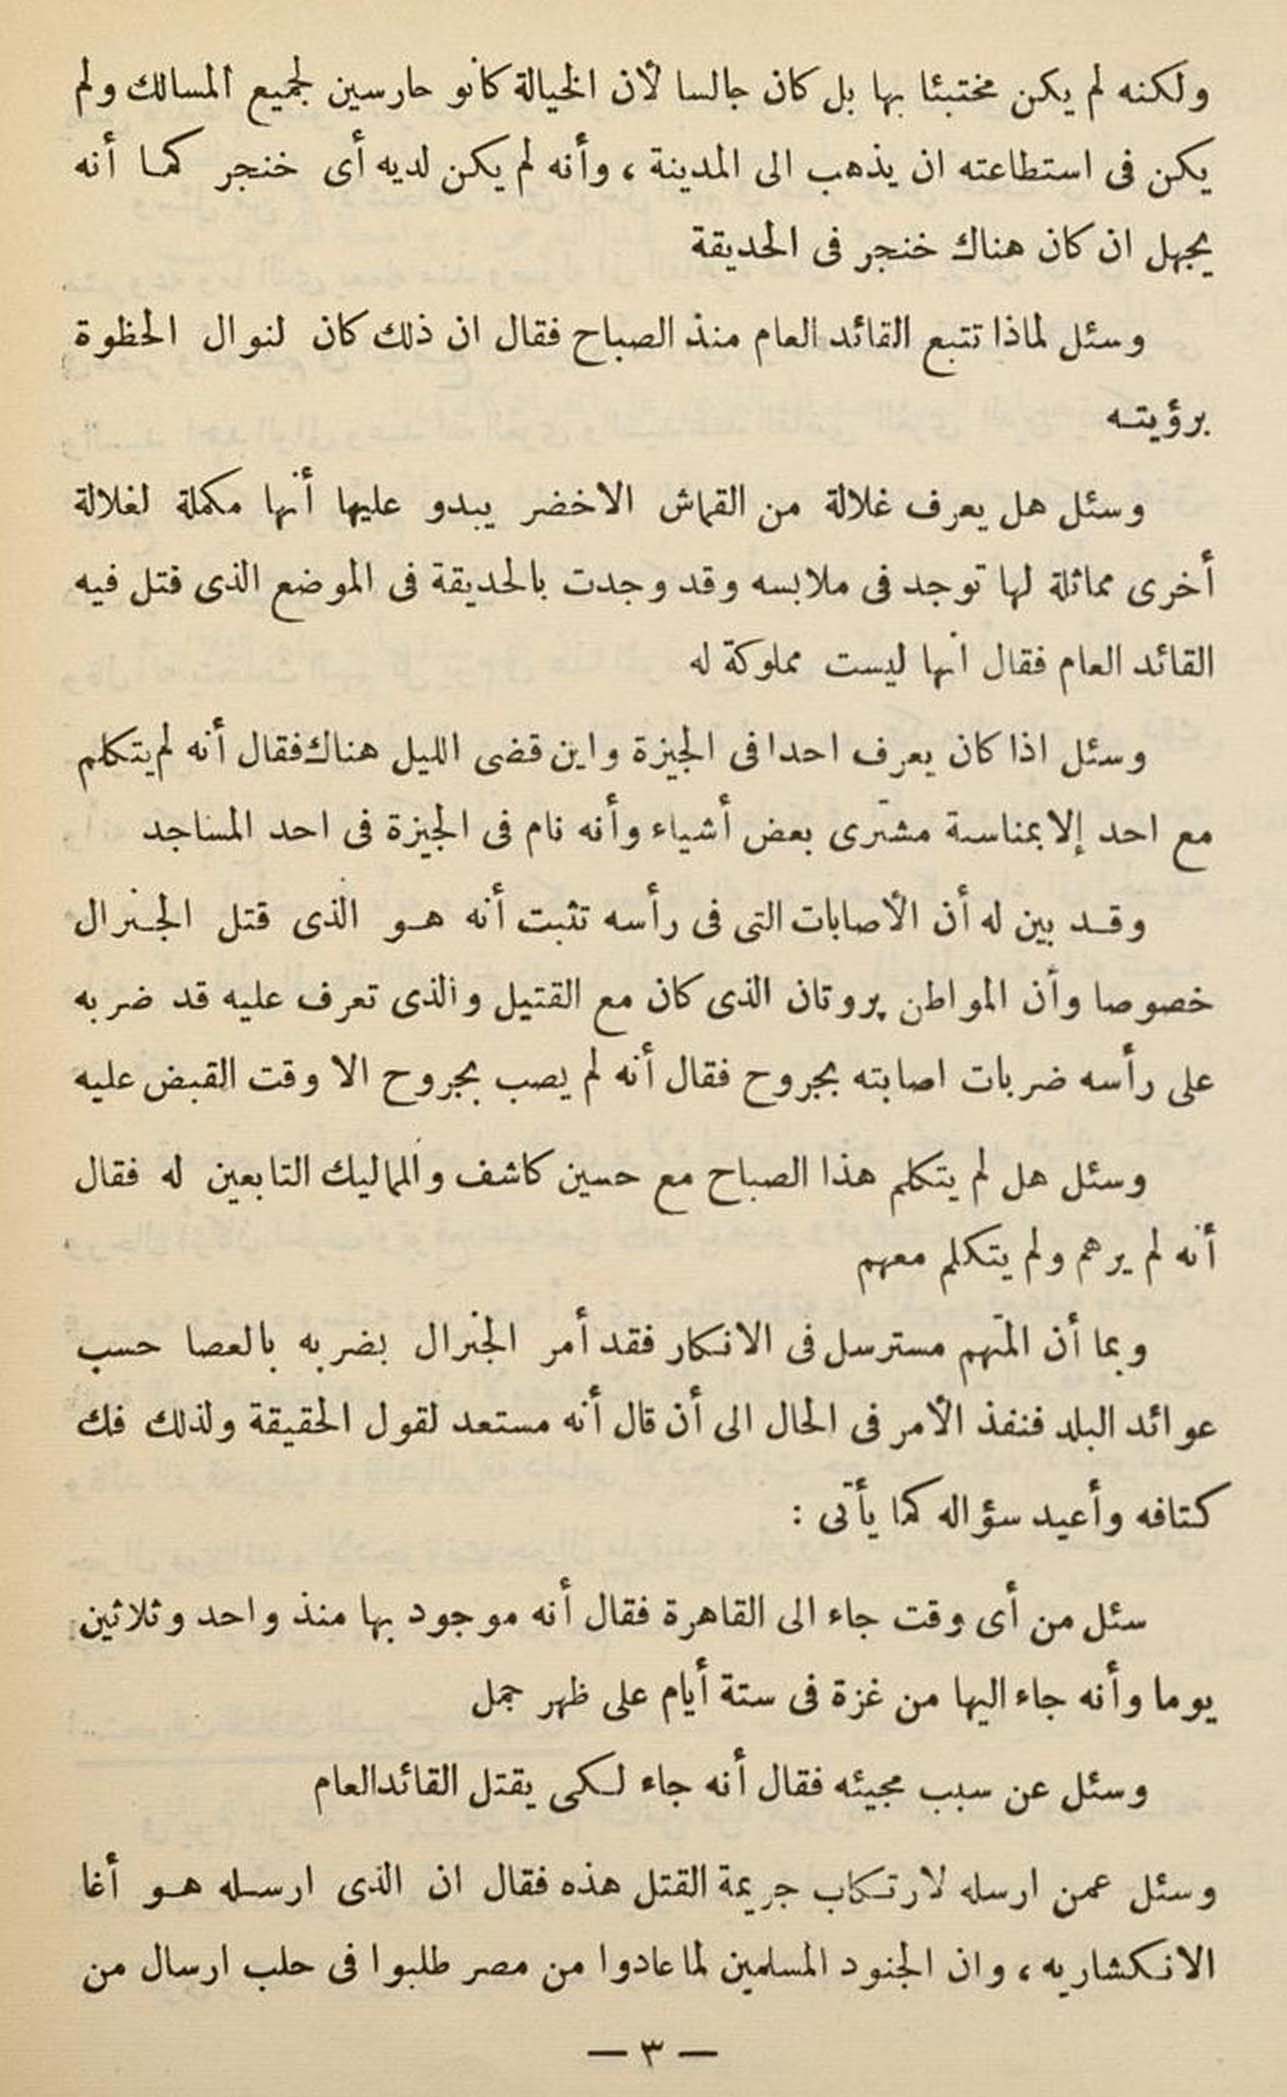 ولكنه لم يكن مختبئا بها بل كان جالسا لأن الخيالة كانو حارسين لجميع المسالك ولم
يكن فى استطاعته ان يذهب الى المدينة ، وأنه لم يكن لديه أى خنجر كما أنه
يجهل ان كان هناك خنجر فى الحديقة
وسئل لماذا تتبع القائد العام منذ الصباح فقال ان ذلك كان لنوال الحظوة
برؤيته
وسئل هل يعرف غلالة من القماش الاخضر يبدو عليها أنها مكملة لغلالة
أخرى مماثلة لها توجد فى ملابسه وقد وجدت بالحديقة فى الموضع الذى قتل فيه
القائد العام فقال انها ليست مملوكة له
وسئل اذا كان يعرف احدا فى الجيزة واين قضى الليل هناك فقال أنه لم يتكلم
مع احد إلا بمناسبة مشترى بعض أشياء وأنه نام فى الجيزة فى احد المساجد
وقد بين له أن الأصابات التى فى رأسه تثبت أنه هو الذى قتل الجنرال
خصوصا وأن المواطن پروتان الذى كان مع القتيل والذى تعرف عليه قد ضربه
على رأسه ضربات اصابته بجروح فقال أنه لم يصب بجروح الا وقت القبض عليه
وسئل هل لم يتكلم هذا الصباح مع حسين كاشف والمماليك التابعين له فقال
أنه لم يرهم ولم يتكلم معهم
وبما أن المتهم مسترسل فى الانكار فقد أمر الجنرال بضربه بالعصا حسب
عوائد البلد فنفذ الأمر فى الحال الى أن قال أنه مستعد لقول الحقيقة ولذلك فك
كتافه وأعيد سؤاله كما يأتى :
سئل من أى وقت جاء الى القاهرة فقال أنه موجود بها منذ واحد وثلاثين
يوما وأنه جاء اليها من غزة فى ستة أيام على ظهر جمل
وسئل عن سبب مجيئه فقال أنه جاء لكى يقتل القائد العام
وسئل عمن ارسله لارتكاب جريمة القتل هذه فقال ان الذى ارسله هو أغا
الانكشاريه ، وان الجنود المسلمين لما عادوا من مصر طلبوا فى حلب ارسال من
— ٣ —